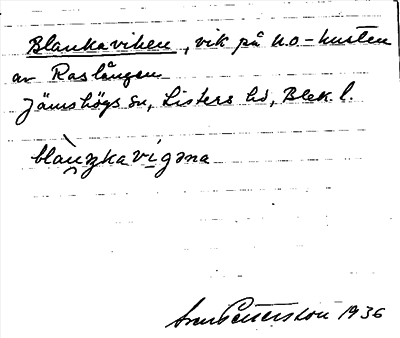 Blankaviken, vik på n.o-kusten
av Raslången
Jämshögs sn, Listers hd, Blek. l.
blàŋkavigəna
Pettersson 1936